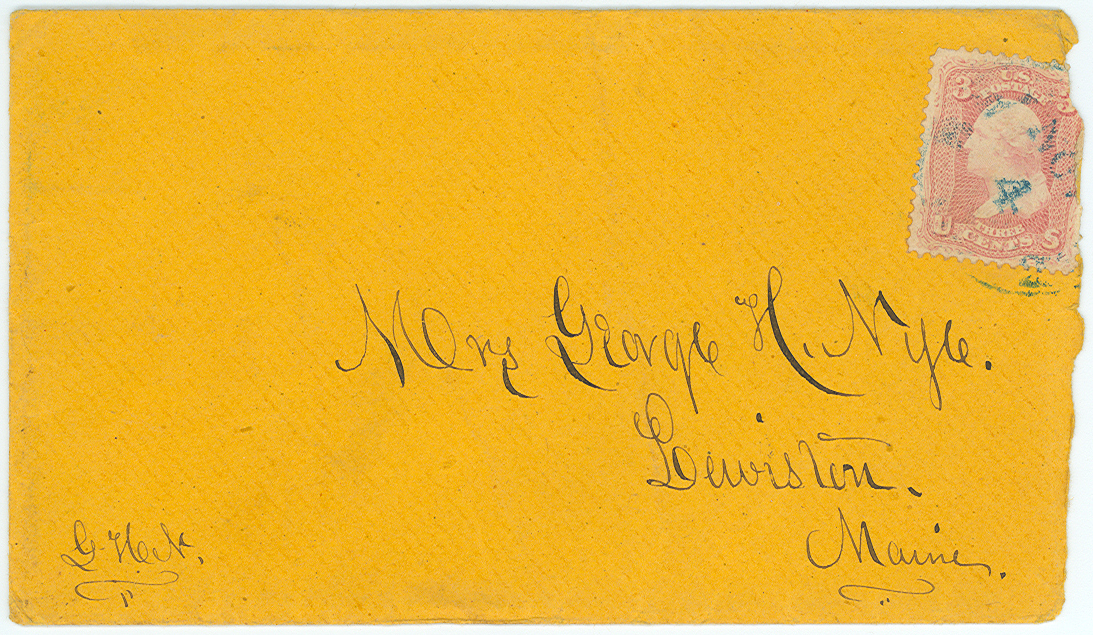 3 U.S. 3
POSTAGE
U THREE S
CENTS
Mrs George H. Nye.
Lewiston.
Maine.
G. H. N.